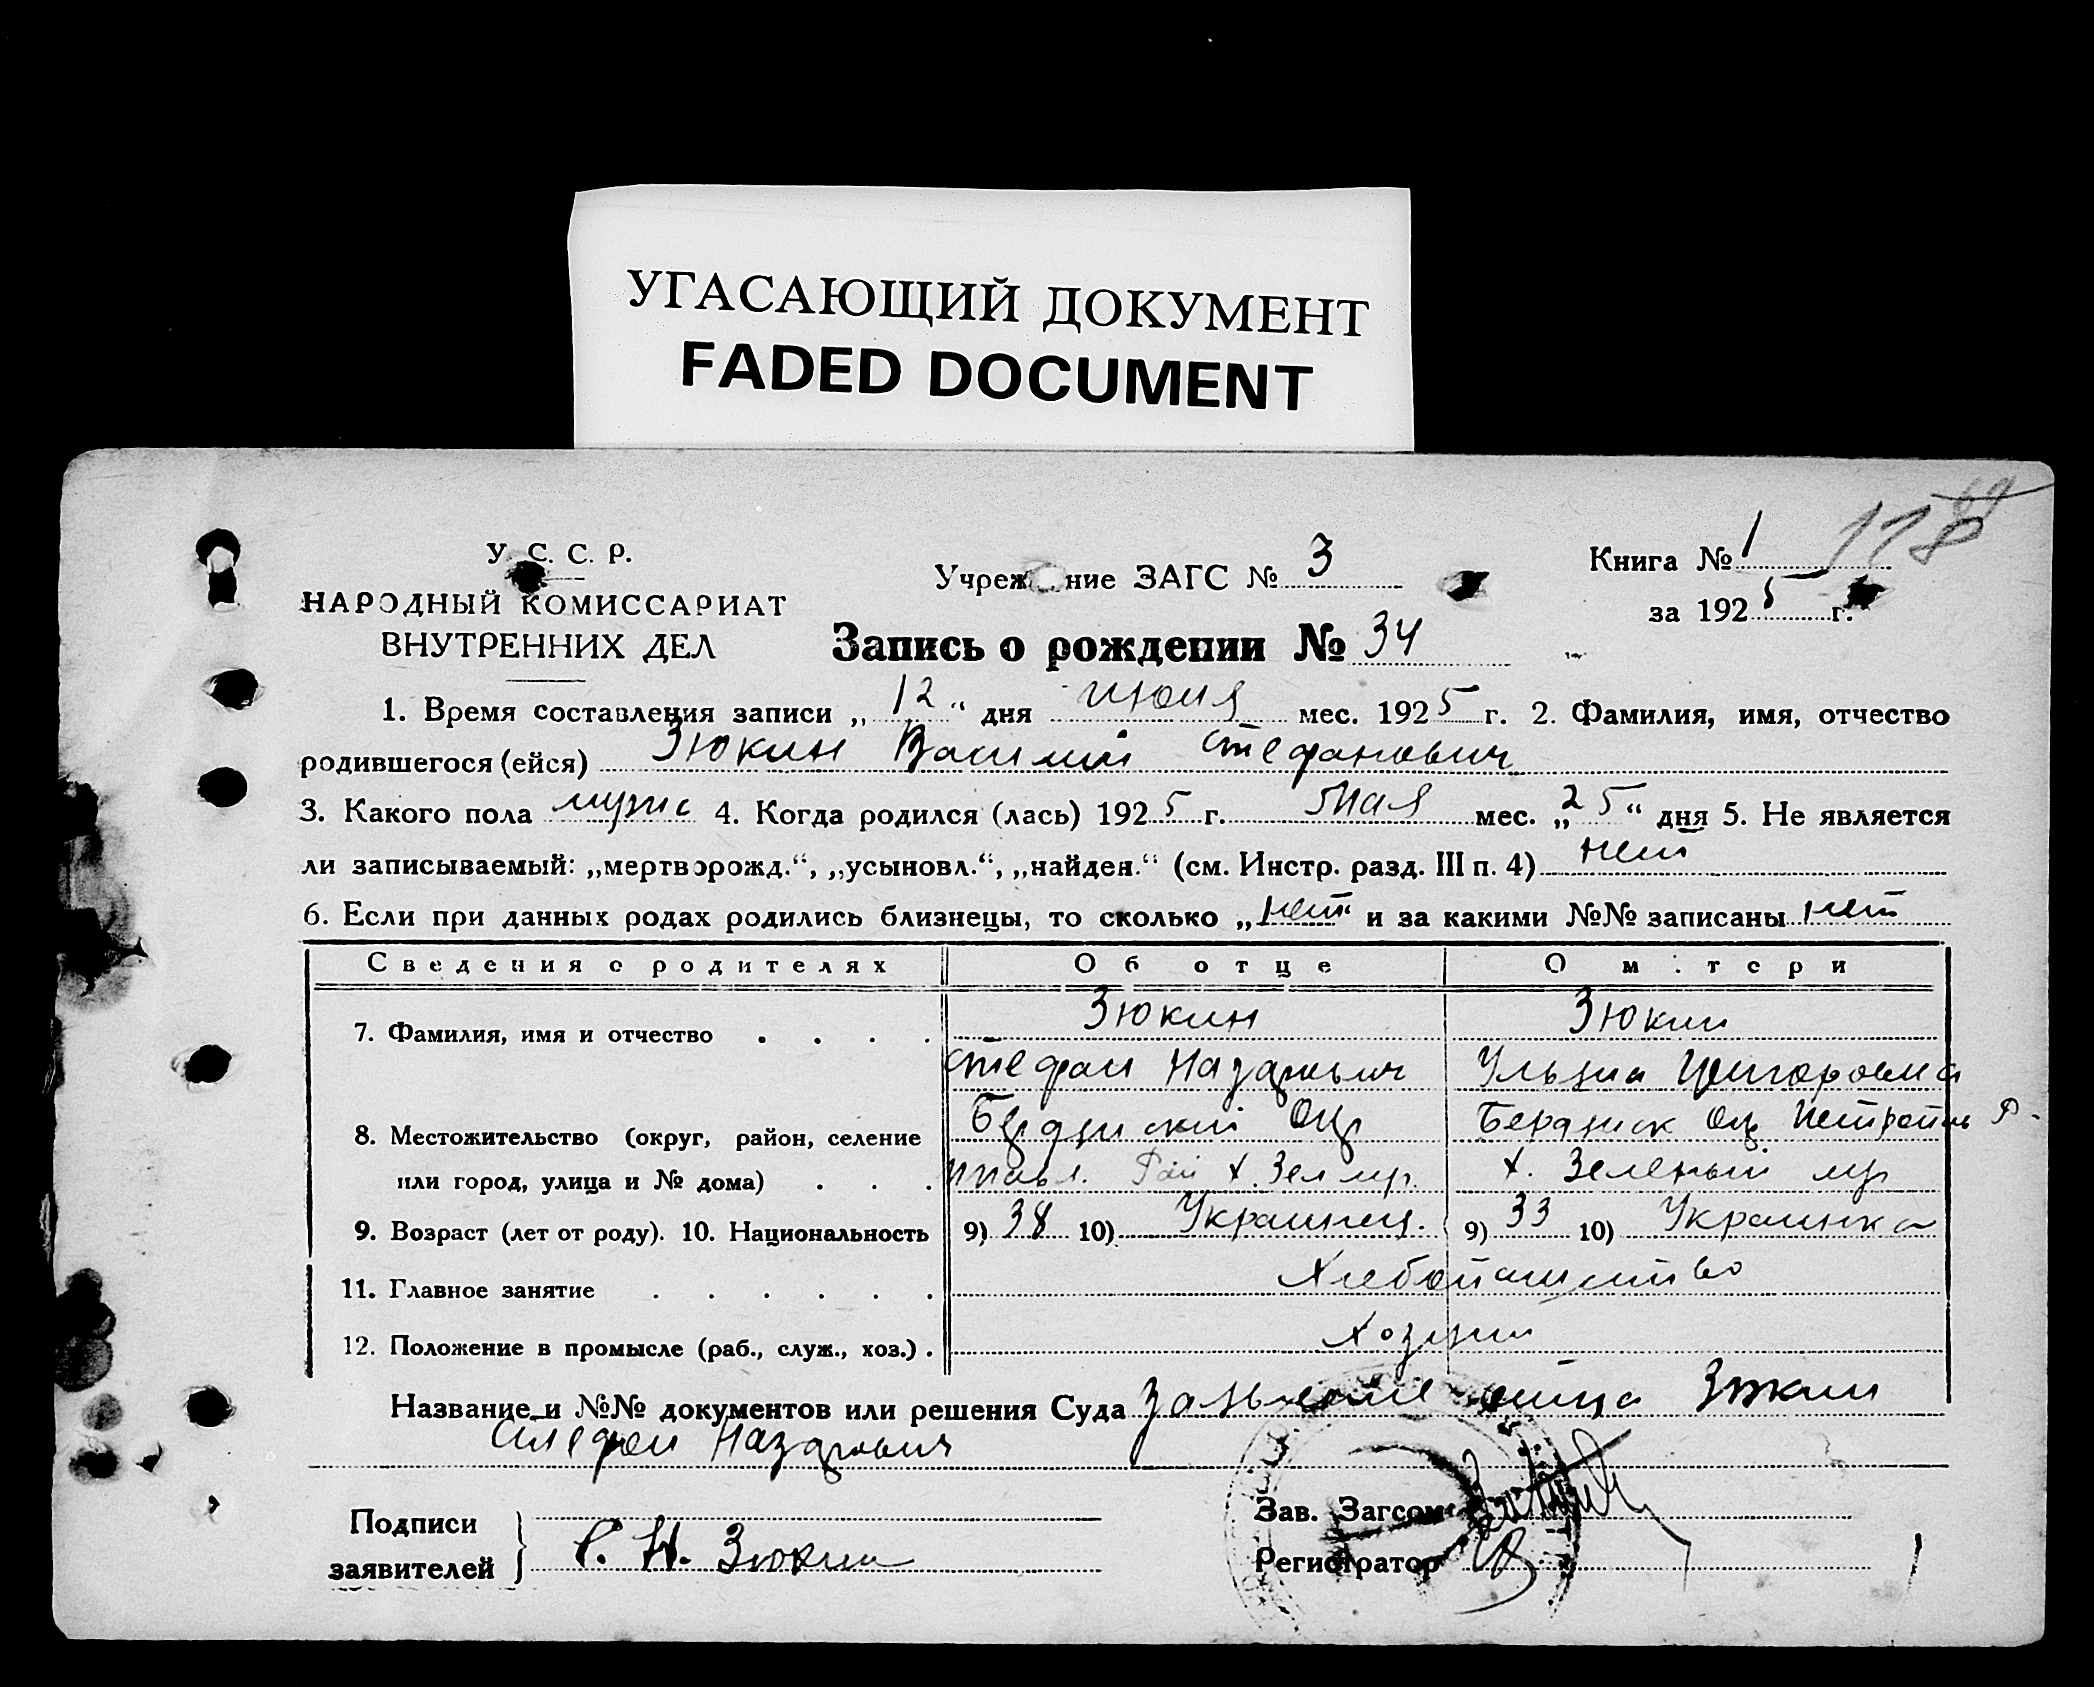 УГАСАЮЩИЙ ДОКУМЕНТ
FADED DOCUMENT
118
У. С. С. Р.
НАРОДНЫЙ КОМИССАРИАТ
ВНУТРЕННИХ ДЕЛ
Учреж ние ЗАГС № 3
Книга № 1
за 1925 г.
Запись о рождении № 34
1. Время составления записи „ 12 “ дня июня мес. 1925 г. 2. Фамилия, имя, отчество
родившегося (ейся) Зюкин Василий Стефанович
3. Какого пола мужс 4. Когда родился (лась) 1925 г. Мая мес. „ 25 “ дня 5. Не является
ли записываемый: „мертворожд.“, „усыновл.“, „найден.“ (см. Инстр. разд. III п. 4) нет
6. Если при данных родах родились близнецы, то сколько „нет“ и за какими №№ записаны нет
Сведения о родителях Об отце О м тери
7. Фамилия, имя и отчество . . . . Зюкин Зюкин
Стефан Назарович Ульяна Григоровна
8. Местожительство (округ, район, селение Бердянский Окр Бердянск Окр
или город, улица и № дома) . . . х. Зел х. Зеленый
9. Возраст (лет от роду). 10. Национальность 9) 38 10) Украинец. 9) 33 10) Украинка
11. Главное занятие . . . . . . Хлебопашество
12. Положение в промысле (раб., служ., хоз.) . Хозяин
Название и №№ документов или решения Суда Заявление отца Зюкин
Стефан Назарович
Подписи
заявителей } С. Н. Зюкин
Зав. Загсом
Регистратор